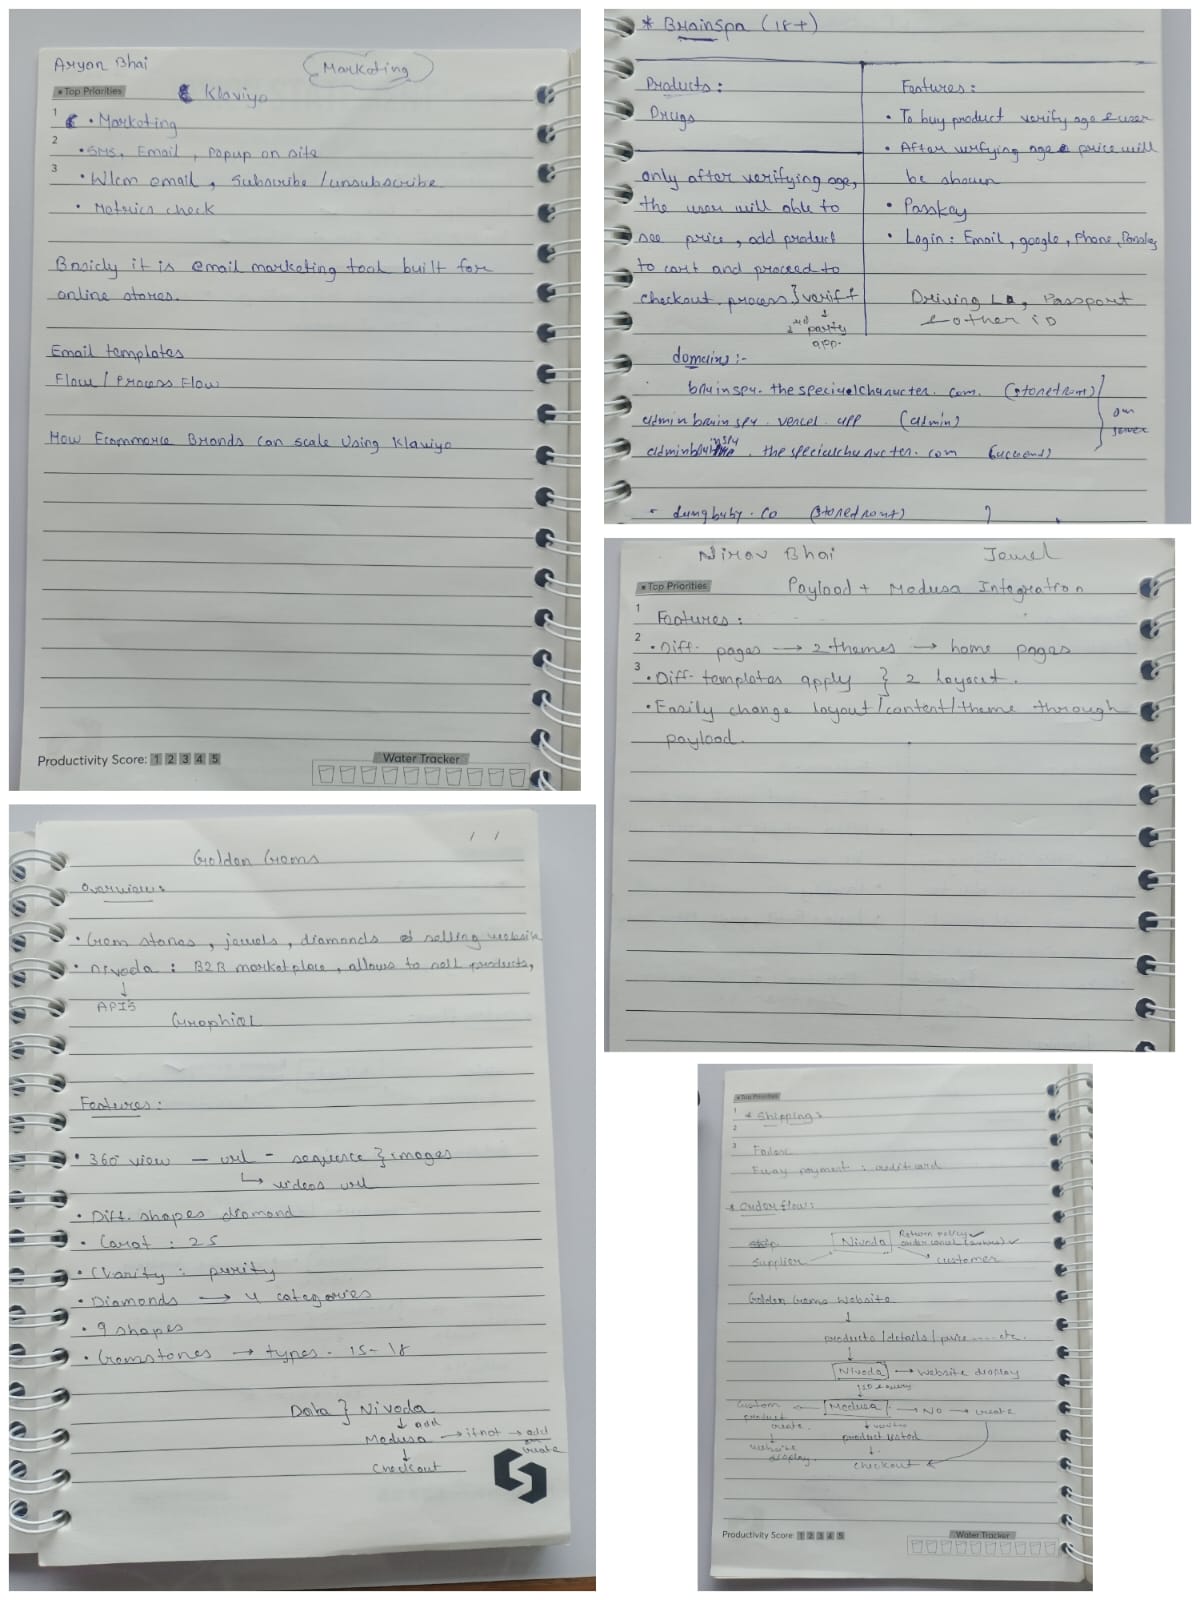 Aryan Bhai
Marketing
Top Priorities
Klaviyo
1
• Marketing
2
• SMS, Email, popup on site
3
• Wlcm email, Subscribe / unsubscribe
• Metrics check
Basicly it is email marketing tool built for
online stores.
Email templates
Flow / Process Flow
How Ecommerce Brands can scale Using Klaviyo
Productivity Score: 1 2 3 4 5
Water Tracker
* BrainSpa (18+)
Products :
Drugs
only after verifying age,
the user will able to
see price, add product
to cart and proceed to
checkout process } verify
party
app.
Features :
• To buy product verify age & user
• After verifying age price will
be shown
• Passkey
• Login : Email, google, Phone, Passkey
Driving , Passport
& other ID
domains :-
brainspy. thespecialcharacter. com. (storefront)
adminbrainspy. vercel. app (admin)
. thespecialcharacter. com
our
server
(storefront)
Nirav Bhai
Jewel
Top Priorities
Payload + Medusa Integration
1
Features :
2
• Diff. pages → 2 themes → home pages
3
• Diff. templates apply } 2 layout.
• Easily change layout/content/theme through
payload.
Golden Gems
Overview :
• Gem stones, jewels, diamonds selling website
• Nivoda : B2B marketplace, allows to sell products,
↓
APIs
Features :
• 360° view — url - sequence } images
↳ videos url
• Diff. shapes diamond
• Carat : 25
• Clarity : purity
• Diamonds → 4 categories
• 9 shapes
• Gemstones → types - 15-18
Data } Nivoda
↓ add
Medusa → if not → add
or create
↓
Checkout
Top Priorities
1
* Shipping :
2
3
Fedex
Eway payment : credit card
* Order flow :
Nivoda
Return policy ✓
order cancel ✓
Supplier
customer
Golden Gems Website
↓
products / details / price ..... etc.
↓
Nivoda → website display
↓
Custom
product
create
← Medusa → NO → create
↓
website
display.
product listed
↓
checkout
Productivity Score: 1 2 3 4 5
Water Tracker